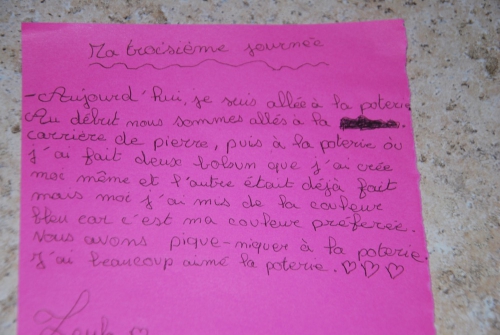 Ma troisième journée
- Aujourd'hui, je suis allée à la poterie.
Au début nous sommes allés à la
carrière de pierre, puis à la poterie où
j'ai fait deux que j'ai crée
moi même et l'autre était déjà fait
mais moi j'ai mis de la couleur
bleu car c'est ma couleur préférée.
Nous avons pique-niquer à la poterie.
J'ai beaucoup aimé la poterie. ♡♡♡